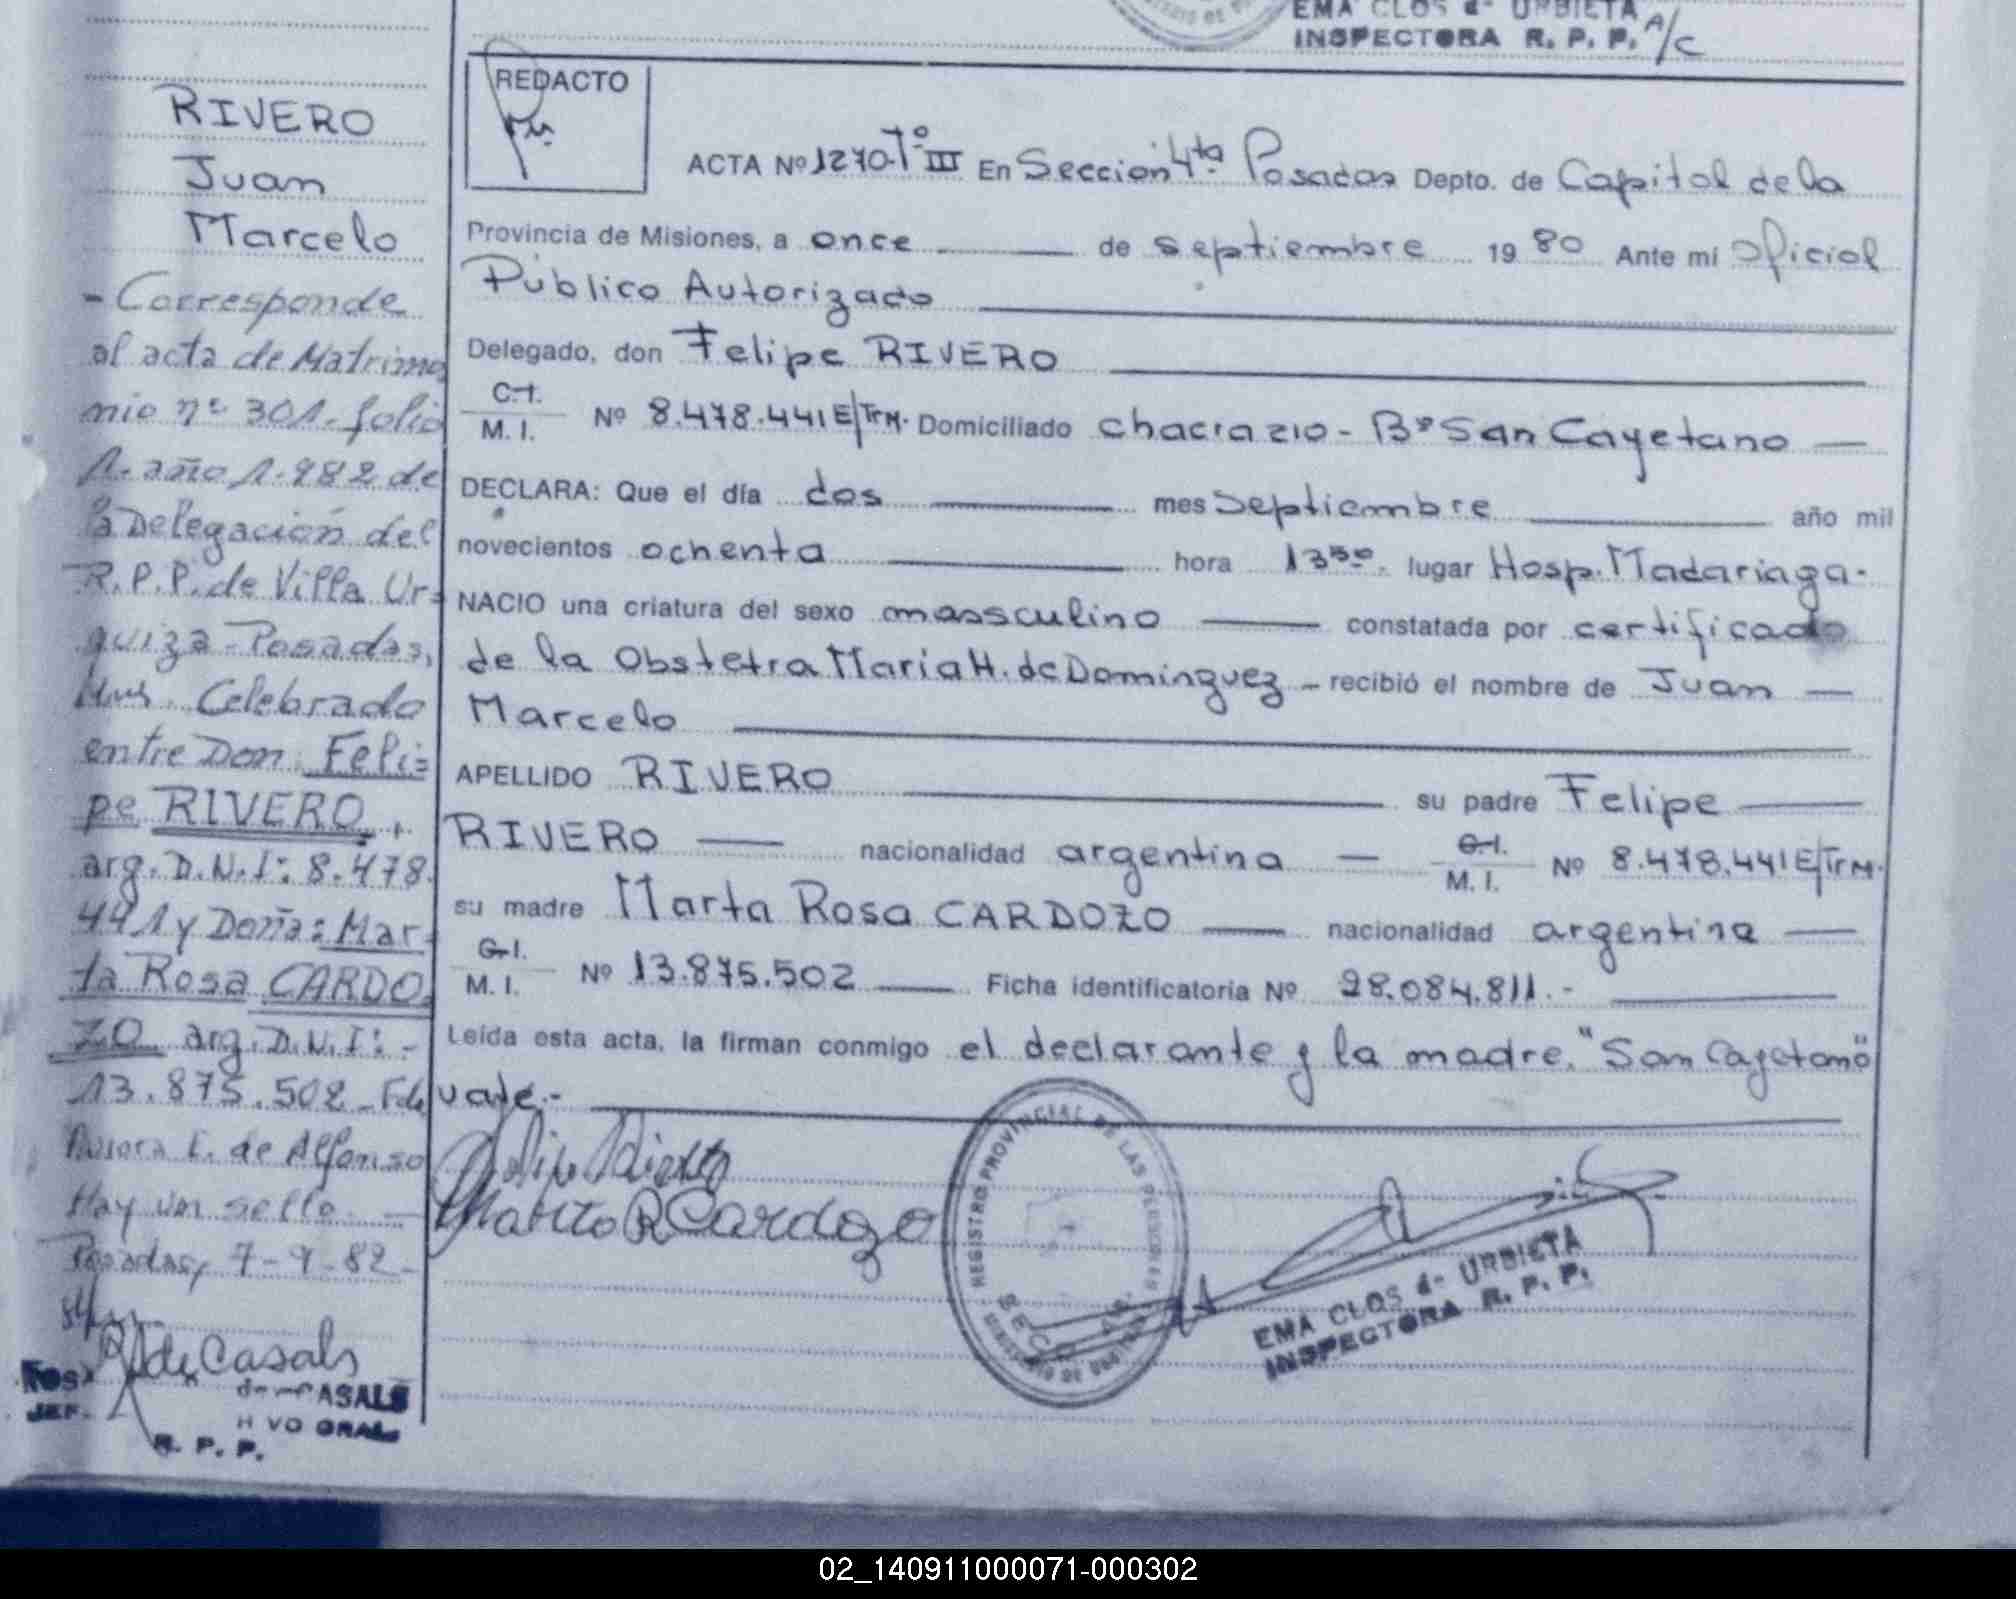 EMA CLOS de URBIETA
INSPECTORA R. P. P. A/C
RIVERO
Juan
Marcelo
- Corresponde
al acta de Matrimo
nio nº 301. folio
1. año 1.982 de
la Delegación del
R.P.P. de Villa Ur=
quiza - Posadas,
Celebrado
entre Don Feli=
pe RIVERO,
arg. D.N.I: 8.478.
441 y Doña: Mar-
ta Rosa CARDO
ZO arg. D.N.I: -
13.875.502 - Fdo
Aurora E. de Alfonso
Hay un sello. —
Posadas, 7-9-82-
R de Casals
de CASALS
JEF.
R. P. P.
REDACTO
ACTA Nº 1270 Tº III En Sección 4ta Posadas Depto. de Capital de la
Provincia de Misiones, a once de septiembre 19 80 Ante mi Oficial
Público Autorizado
Delegado, don Felipe RIVERO
C.I.
M. I. Nº 8.478.441 E/TrM. Domiciliado chacra 210 - Bº San Cayetano —
DECLARA: Que el día dos mes septiembre año mil
novecientos ochenta hora 13⁵⁰. lugar Hosp. Madariaga.
NACIO una criatura del sexo massculino constatada por certificado
de la Obstetra Maria H. de Dominguez - recibió el nombre de Juan —
Marcelo
APELLIDO RIVERO su padre Felipe
RIVERO — nacionalidad argentina — C.I. M. I. Nº 8.478.441 E/TrM.
su madre Marta Rosa CARDOZO nacionalidad argentina —
C.I.
M. I. Nº 13.875.502 Ficha identificatoria Nº 28.084.811.-
Leída esta acta, la firman conmigo el declarante y la madre. "San Cayetano"
vale.-
Marta R Cardozo
REGISTRO PROVINCIAL DE LAS PERSONAS
EMA CLOS de URBIETA
INSPECTORA R. P. P.
02_140911000071-000302